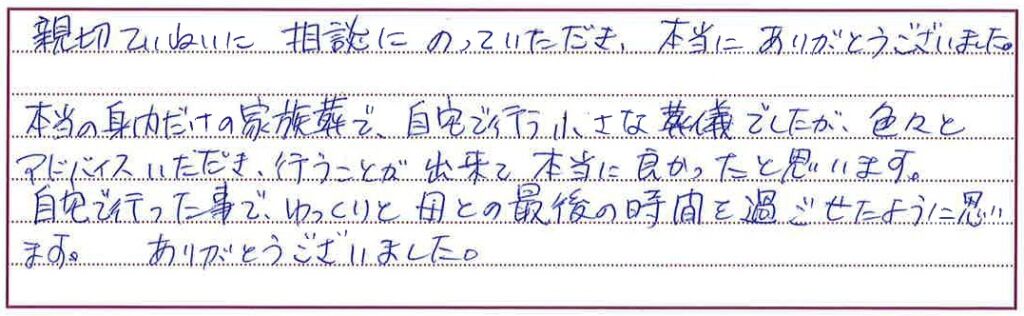 親切ていねいに 相談に のっていただき、 本当に ありがとうございました。
本当の身内だけの家族葬で、自宅で行う小さな葬儀でしたが、色々と
アドバイスいただき、行うことが出来て 本当に良かったと思います。
自宅で行った事で、ゆっくりと 母との最後の時間を過ごせたように思い
ます。 ありがとうございました。